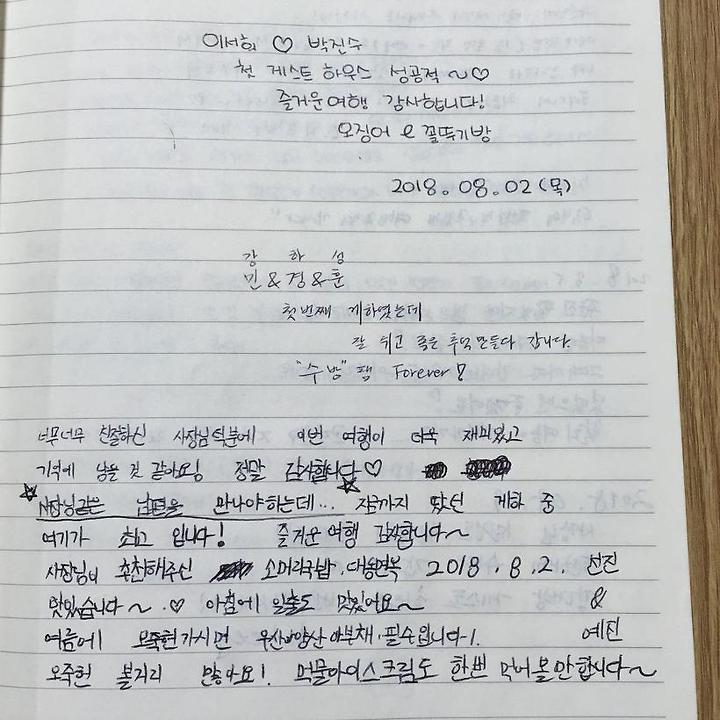 이서희 ♡ 박진수
첫 게스트 하우스 성공적 ~♡
즐거운여행 감사합니다!
오징어 & 꼴뚜기방
2018.08.02(목)
강 하 성
민&경&훈
첫번째 게하였는데
잘 쉬고 좋은 추억만들다 갑니다.
"수방" 팸 Forever!
너무너무 친절하신 사장님덕분에 이번 여행이 더욱 재미있고
기억에 남을 것 같아요! 정말 감사합니다♡
☆사장님같은 남편을 만나야하는데...☆ 지금까지 왔던 게하 중
여기가 최고 입니다! 즐거운여행 감사합니다~
사장님이 추천해주신 소머리국밥, 대왕면옥 2018.8.2. 선진
맛있습니다~. ♡ 아침에 일출도 멋있어요~ &
여름에 오죽헌가시면 우산이양산이부채, 필수입니다!. 예진
오죽헌 볼거리 많아요! 먹물아이스크림도 한번 먹어볼만합니다~